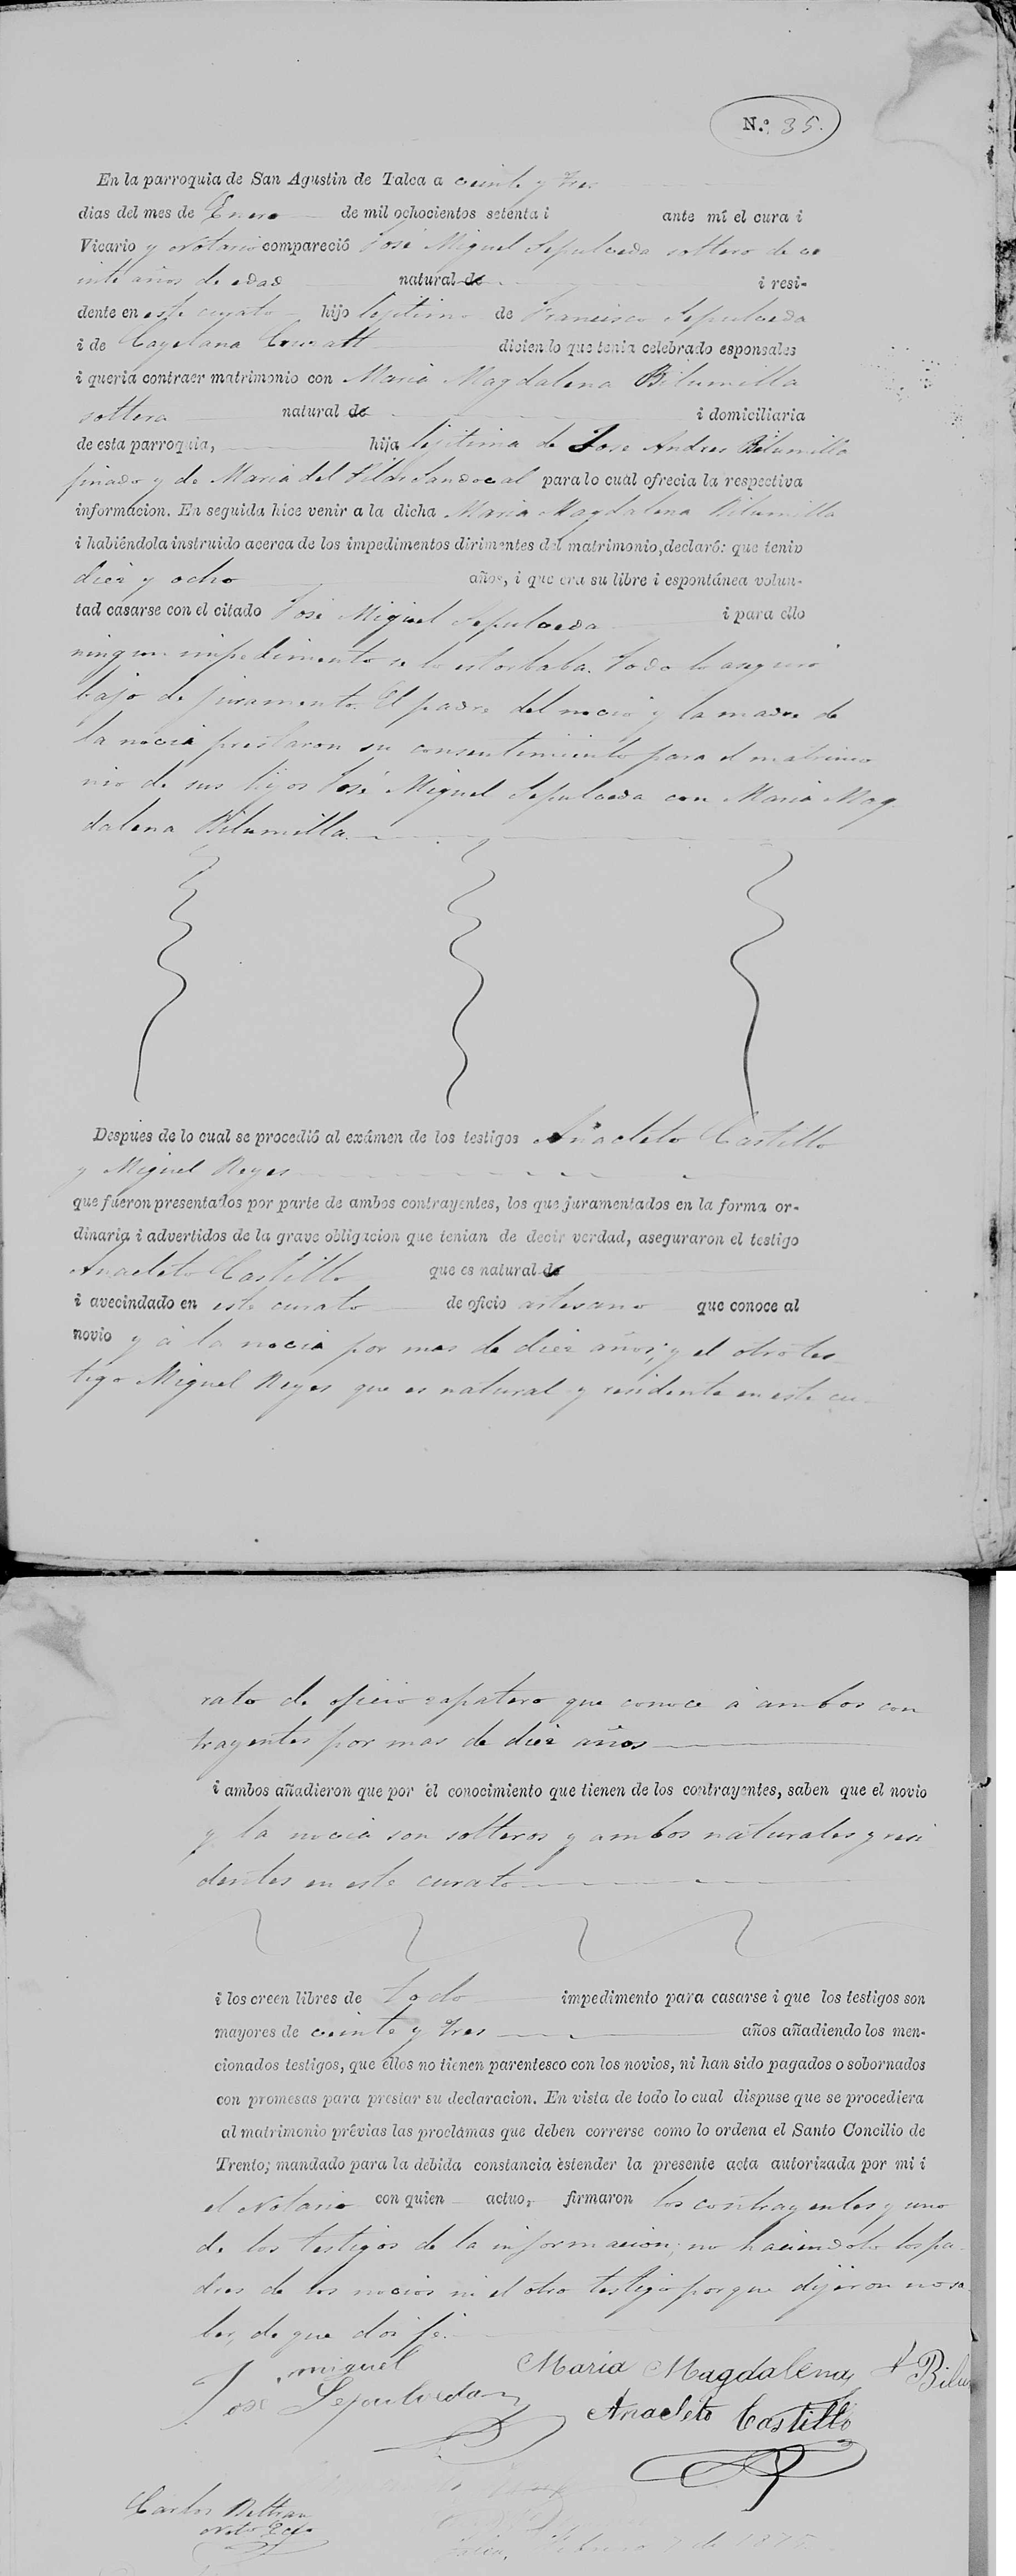 N.º 35.
En la parroquia de San Agustin de Talca a veinte y tres
dias del mes de Enero de mil ochocientos setenta i ante mí el cura i
Vicario y Notario compareció José Miguel Sepulveda soltero de ve
inte años de edad natural de i resi-
dente en este curato hijo lejitimo de Francisco Sepulveda
i de Cayetana diciendo que tenia celebrado esponsales
i queria contraer matrimonio con Maria Magdalena Bilumilla
soltera natural de i domiciliaria
de esta parroquia, hija lejitima de José Andres Bilumilla
finado y de Maria del Pilar Sandoval para lo cual ofrecia la respectiva
informacion. En seguida hice venir a la dicha Maria Magdalena Bilumilla
i habiéndola instruido acerca de los impedimentos dirimentes del matrimonio, declaró: que tenia
diez y ocho años, i que era su libre i espontánea volun-
tad casarse con el citado José Miguel Sepulveda i para ello
ningun impedimento se lo estorbaba. Todo lo aseguró
bajo de juramento. El padre del novio y la madre de
la novia prestaron su consentimiento para el matrimo
nio de sus hijos José Miguel Sepulveda con Maria Mag-
dalena Bilumilla.
Despues de lo cual se procedió al exámen de los testigos Anacleto Castillo
y Miguel Reyes
que fueron presentados por parte de ambos contrayentes, los que juramentados en la forma or-
dinaria i advertidos de la grave obligacion que tenian de decir verdad, aseguraron el testigo
Anacleto Castillo que es natural de
i avecindado en este curato de oficio artesano que conoce al
novio y á la novia por mas de diez años; y el otro tes
tigo Miguel Reyes que es natural y residente en este cu-
rato de oficio zapatero que conoce á ambos con
trayentes por mas de diez años
i ambos añadieron que por el conocimiento que tienen de los contrayentes, saben que el novio
y la novia son solteros y ambos naturales y resi
dentes en este curato
i los creen libres de todo impedimento para casarse i que los testigos son
mayores de veinte y tres años añadiendo los men-
cionados testigos, que ellos no tienen parentesco con los novios, ni han sido pagados o sobornados
con promesas para prestar su declaracion. En vista de todo lo cual dispuse que se procediera
al matrimonio prévias las proclámas que deben correrse como lo ordena el Santo Concilio de
Trento; mandado para la debida constancia estender la presente acta autorizada por mi i
el Notario con quien actuo, firmaron los contrayentes y uno
de los testigos de la informacion; no haciendolo los pa-
dres de los novios ni el otro testigo porque dijeron no sa-
ber, de que doi fé.
miguel
José Sepulveda
Maria Magdalena Bilu
Anacleto Castillo
Carlos Beltran
Noto Eco
Talca, Febrero 7 de 1875